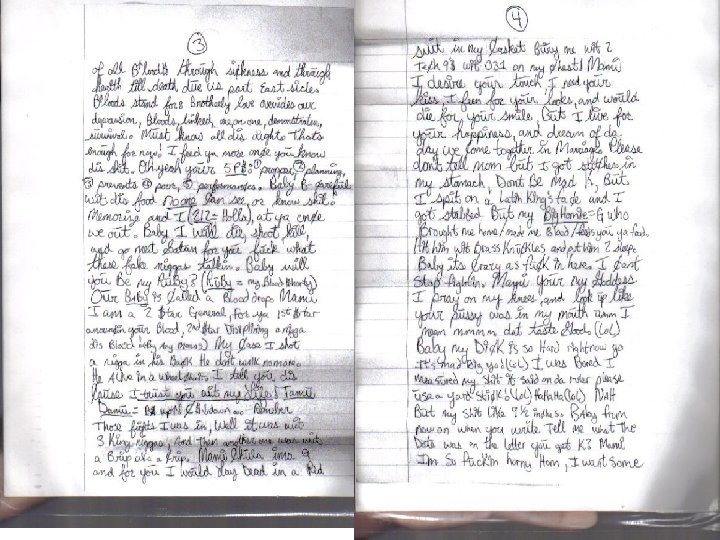 3
of all Blood's through sickness and through
health till death due is part East side.
Bloods stand for Brotherly love overrides our
depression, Bloods, linked, as one, demonstration,
survival. Must know all dis right? Thats
enough for now! I feed ya more once you know
dis shit. Oh yeah your 5 P's: ① proper, ② planning,
③ prevents ④ poor, ⑤ performances. Baby B careful
wit dis food no one can see, or know shit.
Memorize and I (212 = Holla) at ya once
we out. Baby I will die, shoot kill,
and go meet Satan for you fuck what
these fake niggas talkin. Baby will
you Be my Ruby? (Ruby = my Blood
Our Baby is called a Blood drop Mami
I am a 2 star General, for ya 1st star
your Blood, 2nd star Disciplining a nigga
dis Blood My case I shot
a nigga in his Back He dont walk nomore.
He in a wheel I tell you dis
cause I trust you wit my life!
Damu =
Those fights I was in, well it was wit
3 King niggas, and then another one was wit
a Crip Mami
and for you I would lay Dead in a Red
4
suit in my Casket Bury me wit 2
Tech 9's wit 031 on my chest! Mami
I desire your touch I need your
kiss, I feen for your looks, and would
die for your smile. But I live for
your happiness, and dream of da
day we come together in Marriage. Please
dont tell mom but I got stitches in
my stomach, Dont Be Mad K, But
I spit on a Latin King's face and I
got stabbed But my Big Homie = G who
Brought me home/made me Blood/
Hit him wit Brass Knuckles and got him 2
Baby its crazy as fuck in here. I cant
stop fightin. Mami your my Goddess
I pray on my knees, and look up like
your pussy was in my mouth umm I
mean mmmm dat taste Good. (Lol)
Baby my Dick is so Hard right now
(Lol) I was Bored I
measured my shit it said on da ruler please
use a yard stick! (Lol) HaHaHa (Lol) NaH
But my shit like 9 ½ inches. Baby from
now on when you write Tell me what the
Date was on the letter you get K? Mami
Im So fuckin horny Ham, I want some